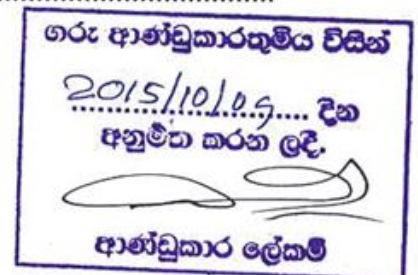 ගරු ආණ්ඩුකාරතුමිය විසින්
2015/10/09 දින
අනුමත කරන ලදී.
ආණ්ඩුකාර ලේකම්